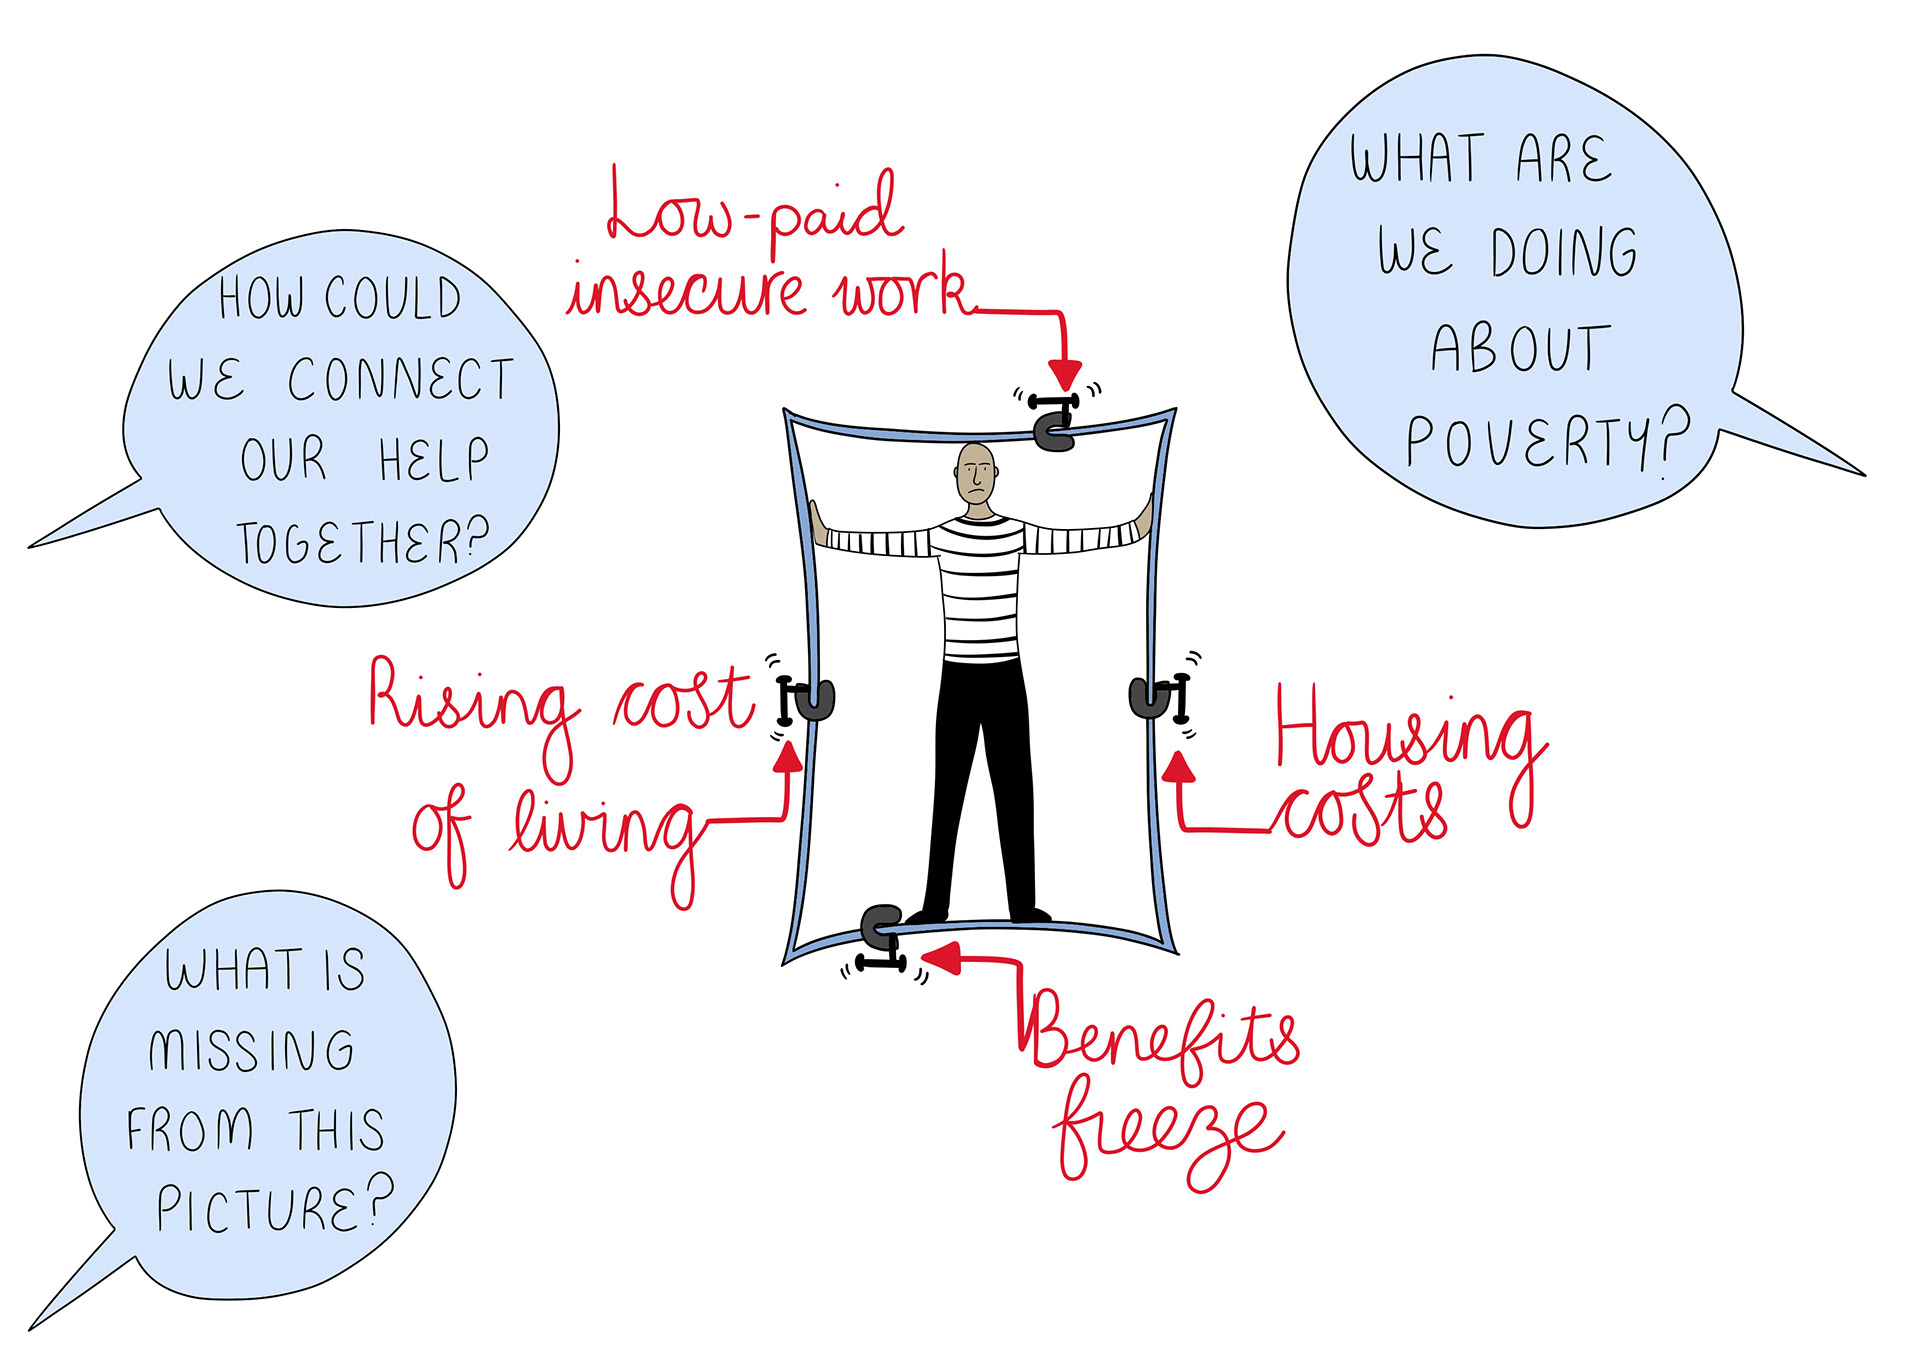 WHAT ARE
WE DOING
ABOUT
POVERTY?
Low-paid
insecure work
HOW COULD
WE CONNECT
OUR HELP
TOGETHER?
Rising cost
of living
Housing
costs
WHAT IS
MISSING
FROM THIS
PICTURE?
Benefits
freeze